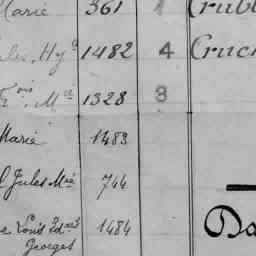 Marie 361 1 Crubl
ules, Hy 1482 4 Cruch
Fois Mie 1328 3
Marie 1483
l Jules Mie 744
e Louis Edmd 1484
Georges
Da